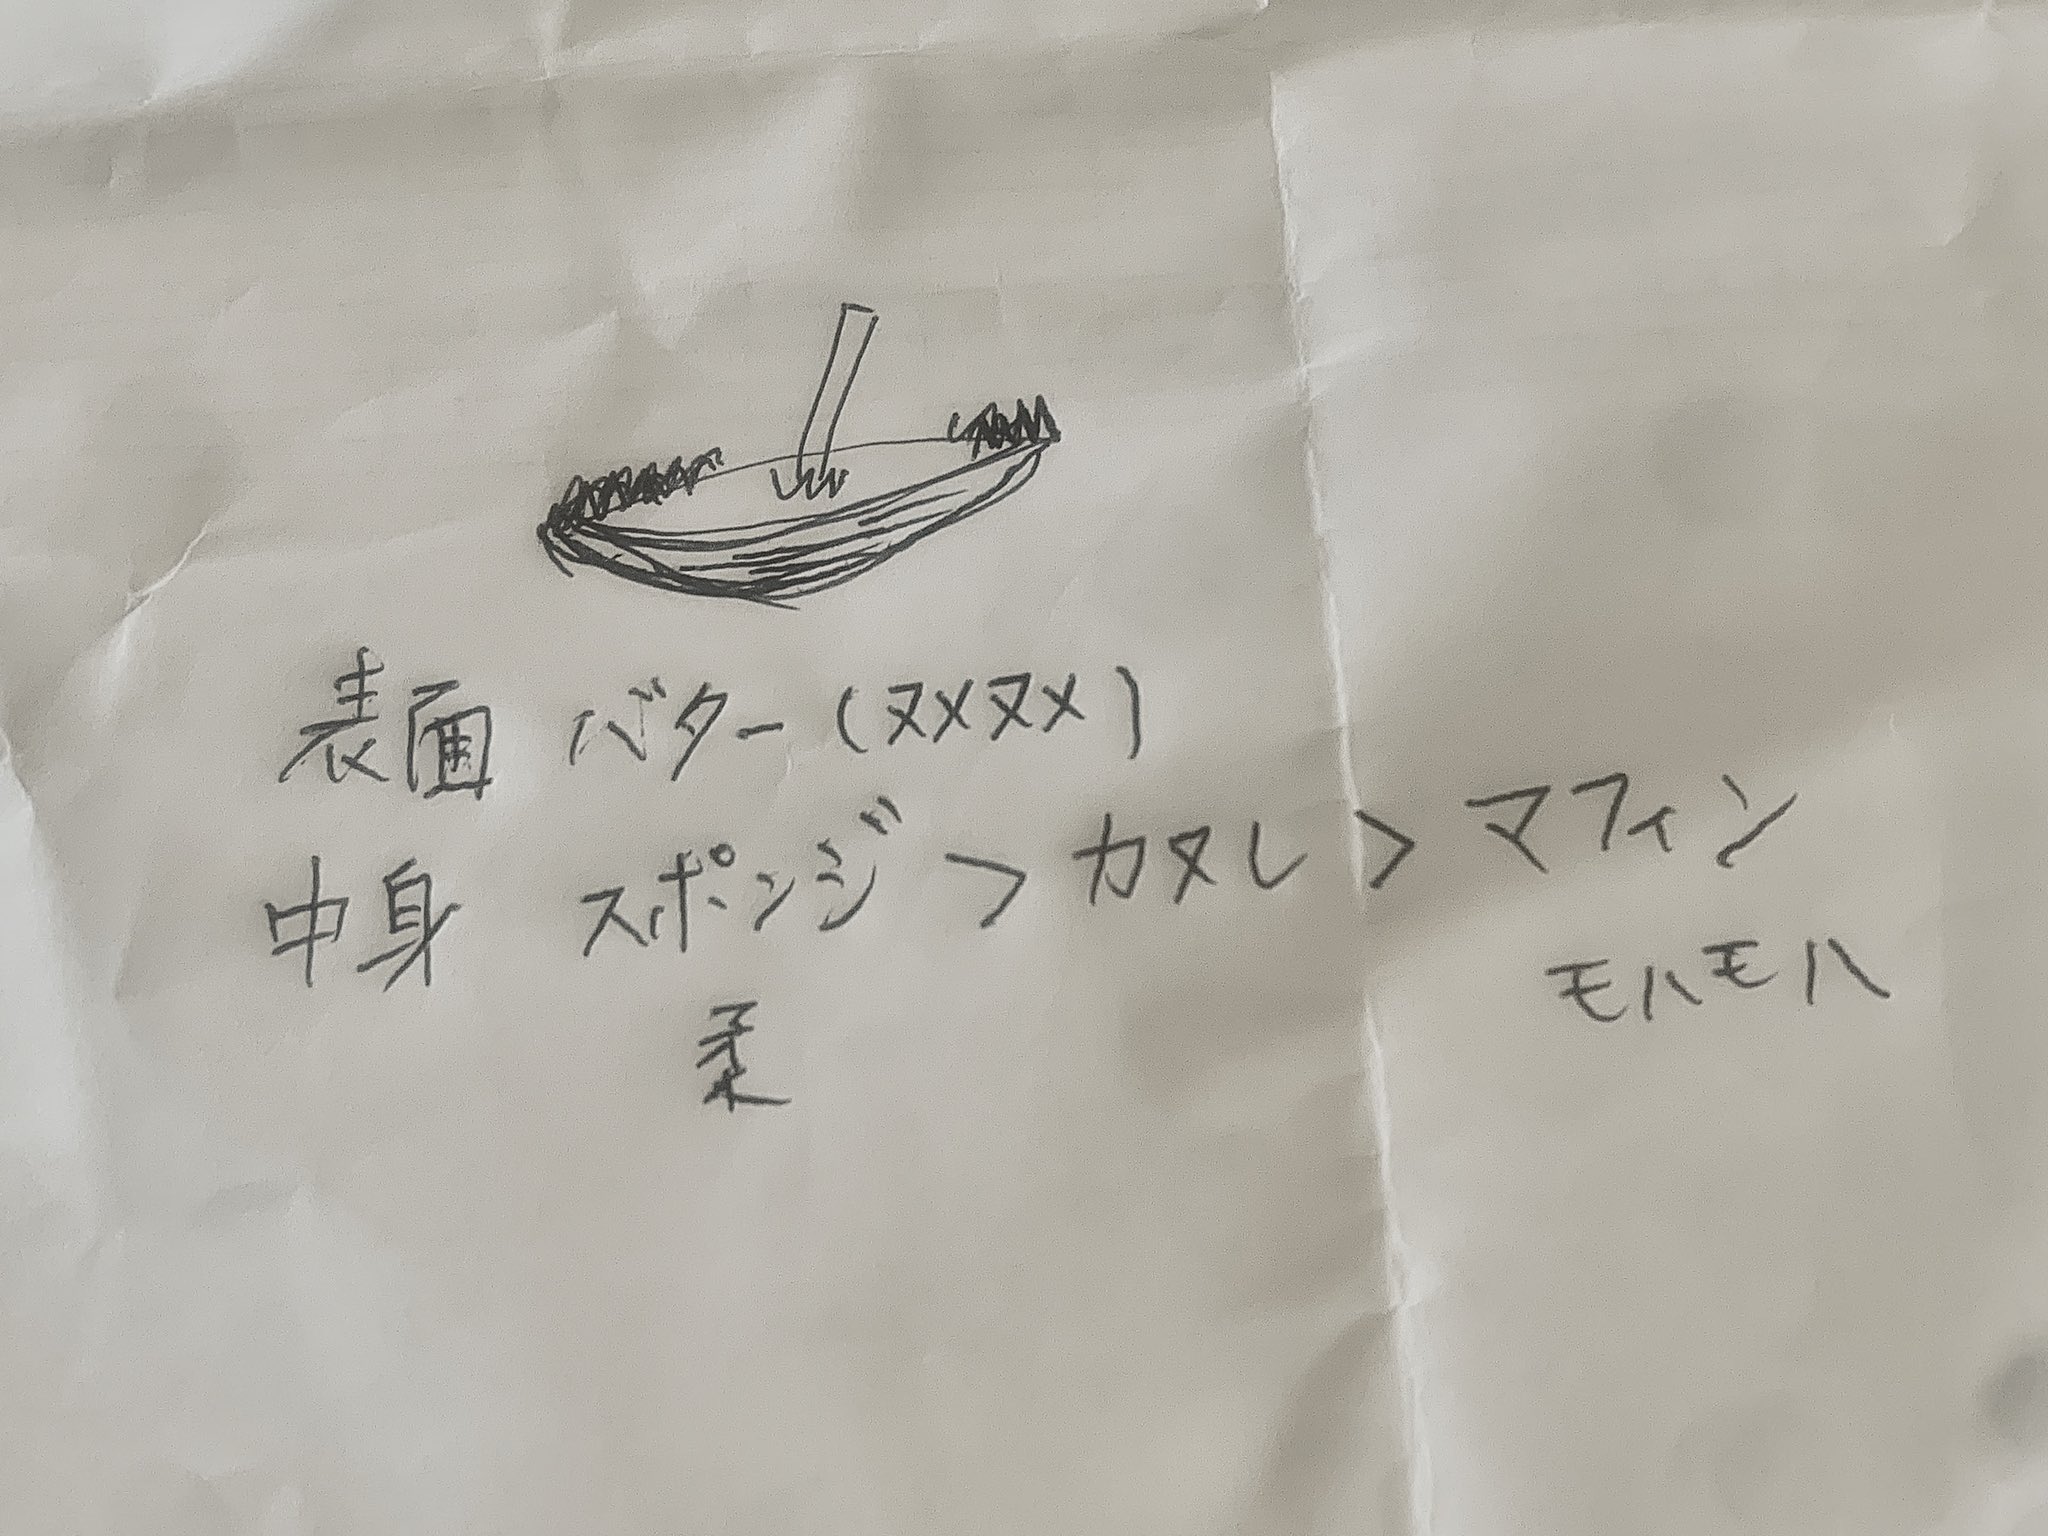 表面 バター(ヌメヌメ)
中身 スポンジ>カヌレ>マフィン
モハモハ
柔